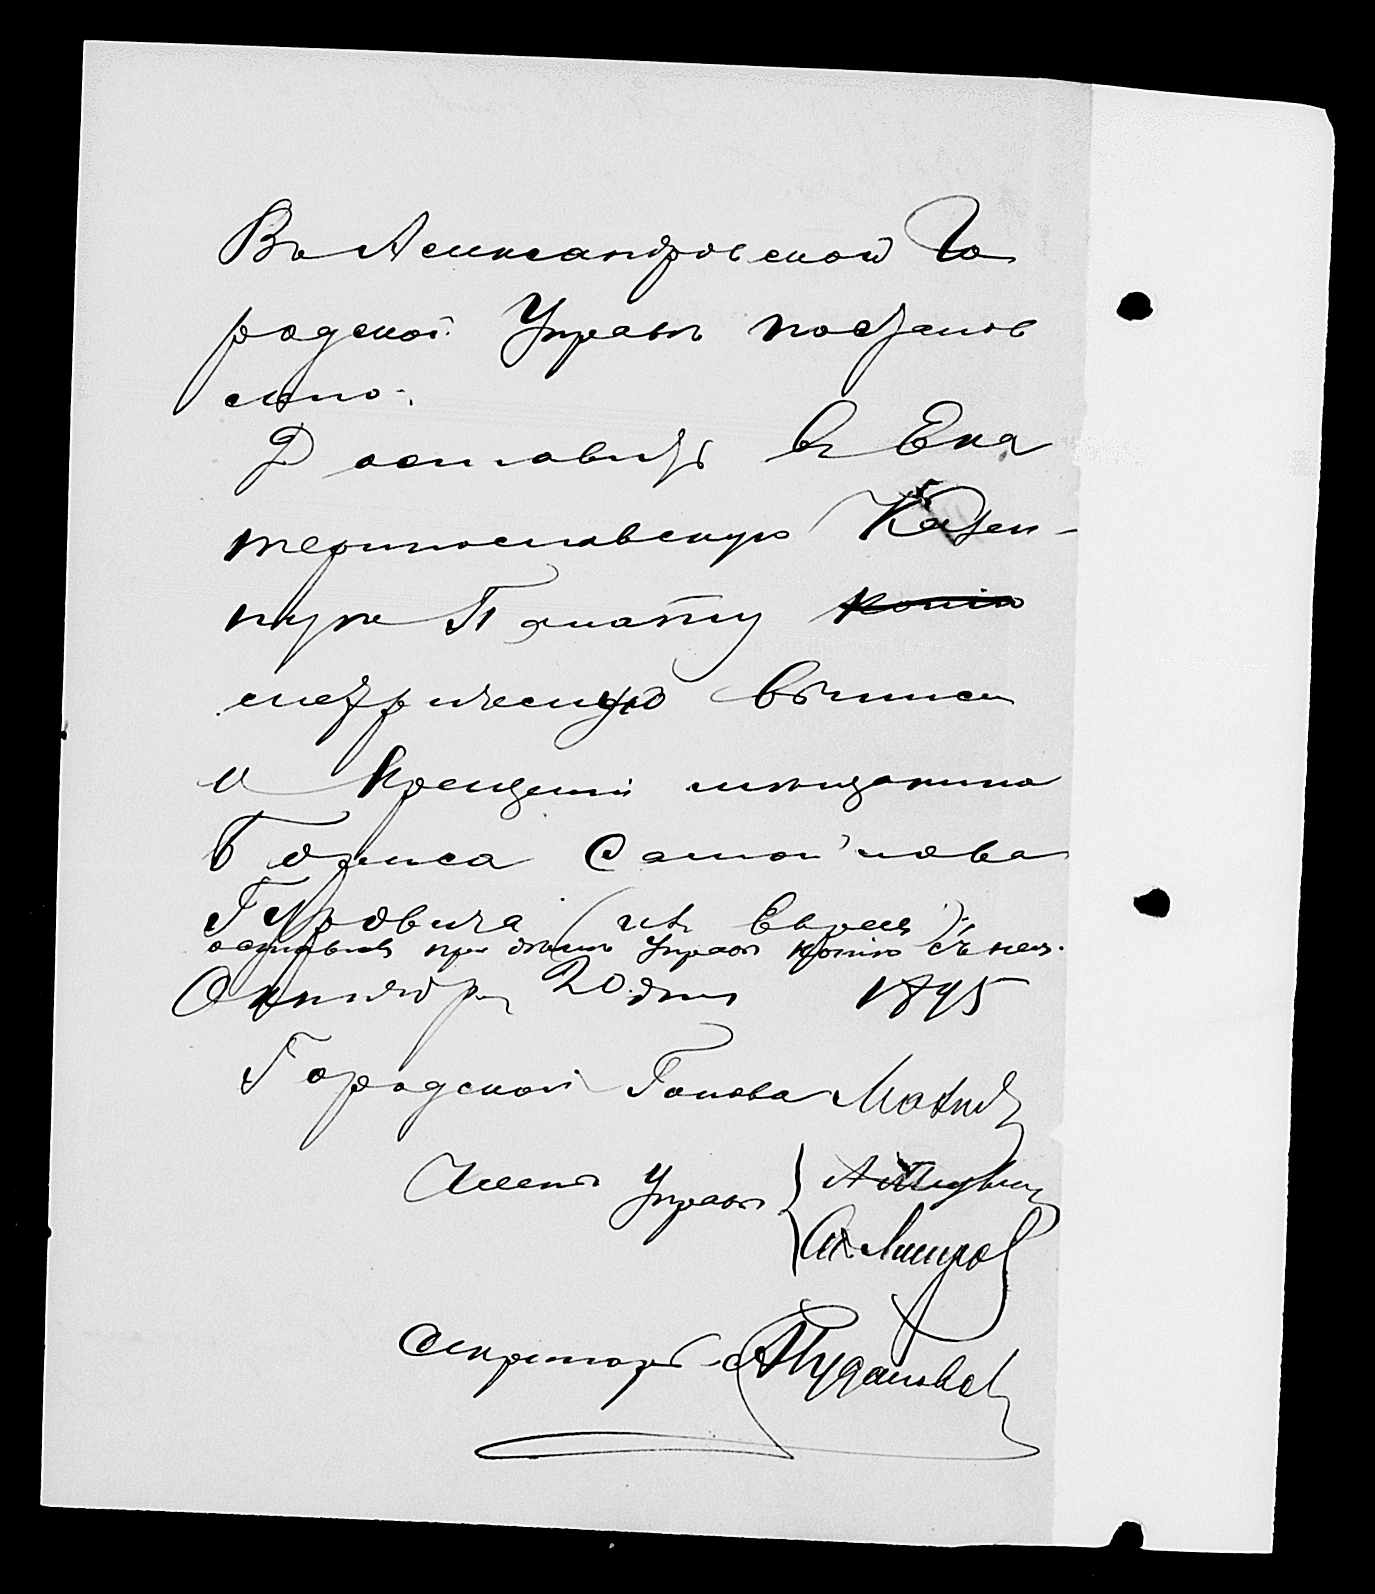 Въ Александровской Го
родской Управѣ постанов
лено:
Доставить въ Ека
теринославскую Казен-
ную Палату копію
метрическую выпись
о крещеніи мѣщанина
Бориса Самойлова
Гуровича (изъ Евреевъ)
оставивъ при дѣлахъ Управы копію съ нея.
Октября 20 дня 1895
Городской Голова
Члены Управы
Секретарь